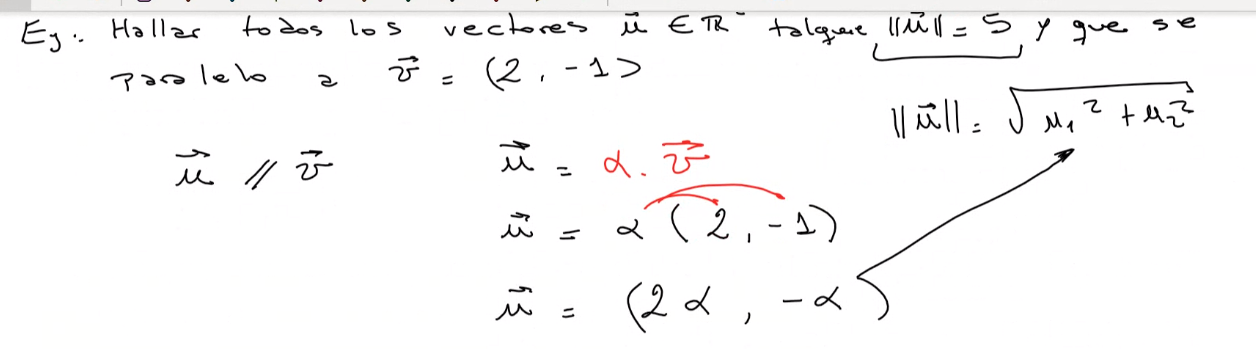 Ej: Hallar todos los vectores u⃗ ∈ ℝ² talque ||u⃗|| = 5 y que se
paralelo a v⃗ = (2, -1)
||u⃗|| = √(u₁² + u₂²)
u⃗ // v⃗
u⃗ = α. v⃗
u⃗ = α (2, -1)
u⃗ = (2α, -α)